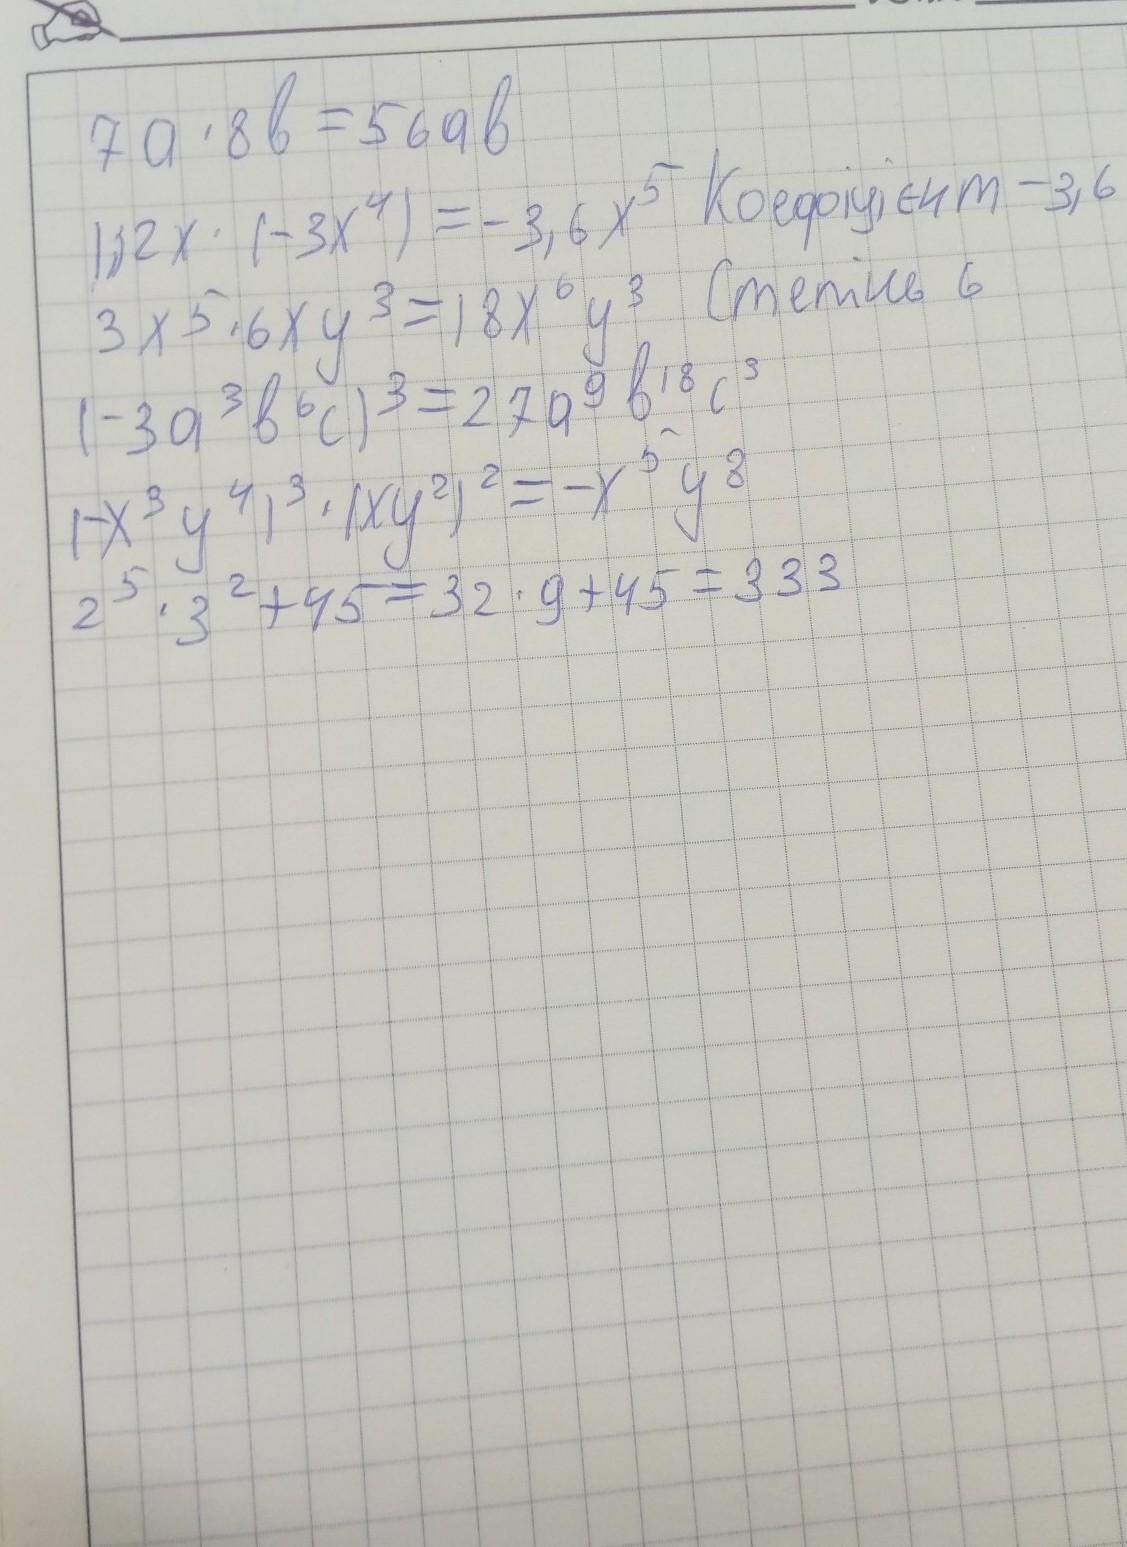 7a · 8b = 56ab
1,2x · (-3x⁴) = -3,6x⁵ Коефіцієнт -3,6
3x⁵ · 6xy³ = 18x⁶y³ Степінь 6
(-3a³b⁶c)³ = 27a⁹b¹⁸c³
(-x³y⁴)³ · (xy²)² = -x⁵y⁸
2⁵ · 3² + 45 = 32 · 9 + 45 = 333